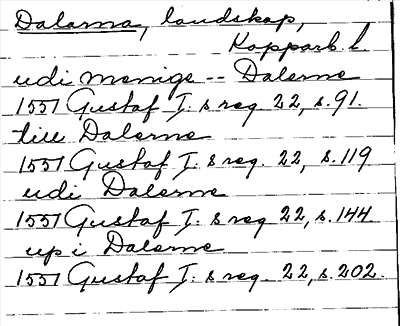 Dalarna, landskap,
Kopparb. l.
udi menige -- Dalerne
1551 Gustaf I: s reg 22, s. 91.
till Dalerne
1551 Gustaf I: s reg. 22, s. 119
udi Dalerne
1551 Gustaf I: s reg 22, s. 144
up i Dalerne
1551 Gustaf I: s reg. 22, s. 202.